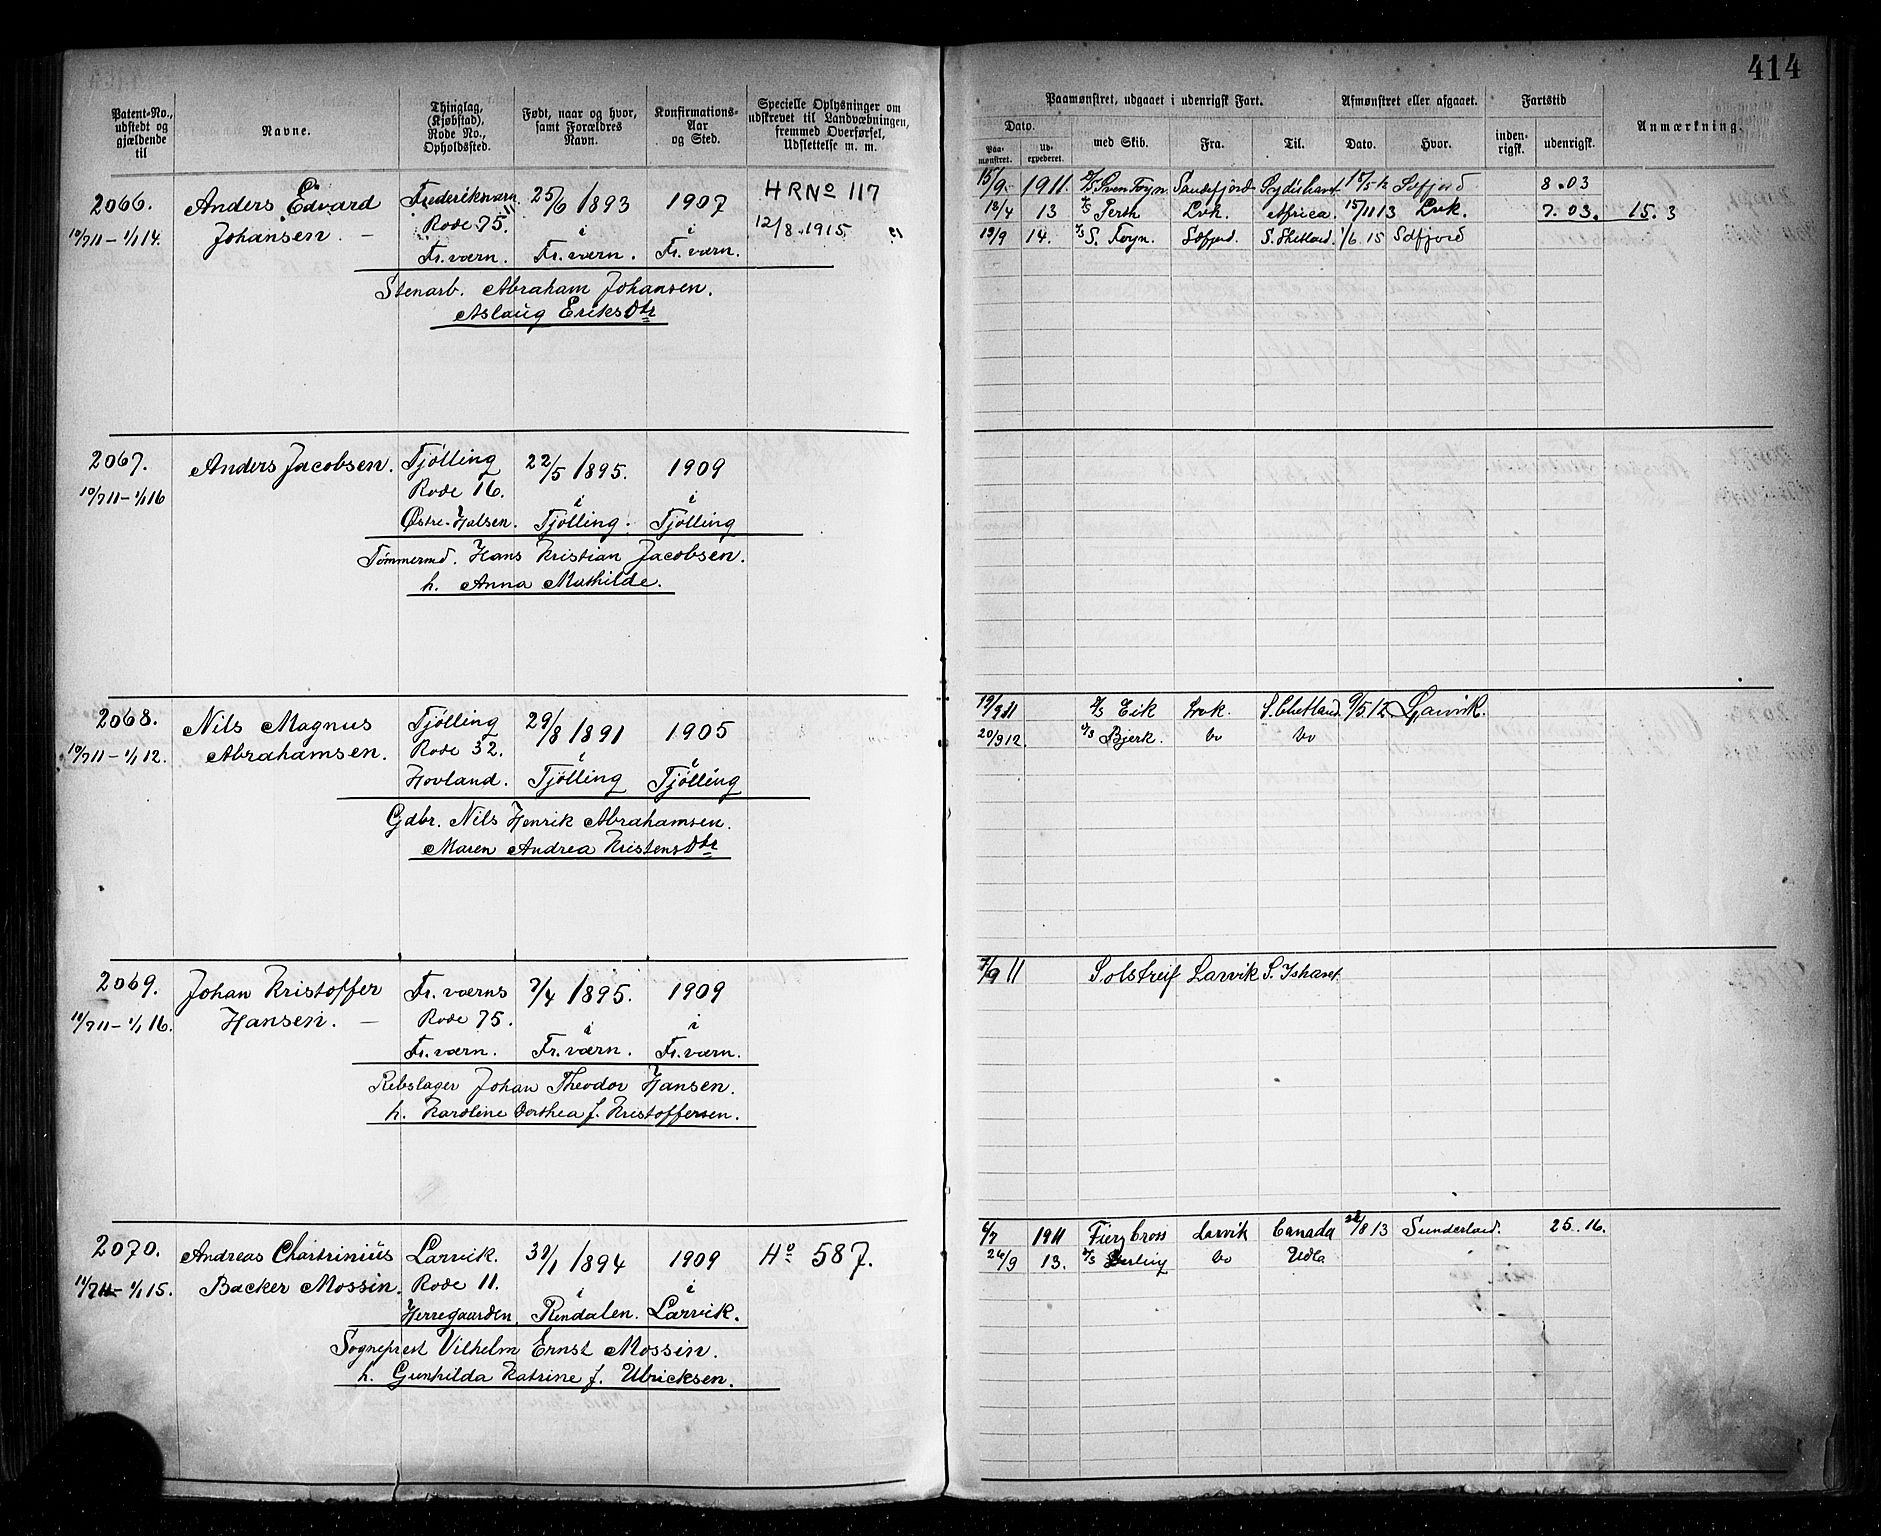 414
Patent-No., udstedt og gjældende til
Navne.
Thinglag, (Kjøbstad), Rode No., Opholdssted.
Født, naar og hvor, samt Forældres Navn.
Konfirmations-Aar og Sted.
Specielle Oplysninger om udskrevet til Landvæbningen, fremmed Overførsel, Udslettelse m. m.
Paamønstret, udgaaet i udenrigsk Fart.
Afmønstret eller afgaaet.
Fartstid
Anmærkning.
Dato.
Paa-mønstret.
Ud-expederet.
med Skib.
Fra.
Til.
Dato.
Hvor.
inden-rigsk.
udenrigsk.
2066. Anders Edvard Frederiksværn 25/6 1893 1907 HRNo 117
10/7 11 – 1/1 14. Johansen. – Rode 75. i i 12/8 1915.
Fr.værn. Fr.værn. Fr.værn.
Stenarb. Abraham Johansen.
Aslaug Eriksdtr
15/9 1911. Sven Foyn Sandefjord Sydishavet 15/5 12 Sdfjord 8.03
18/4 13 Perth Lvk. Africa. 15/11 13 Lvk. 7.03. 15.3
19/9 14. S. Foyn. Sdfjord. S. Shetland. 1/6. 15 Sdfjord
2067. Anders Jacobsen. Tjølling 22/5 1895. 1909
10/7 11 – 1/1 16 Rode 16. i i
Østre-Halsen. Tjølling. Tjølling
Tømmermd. Hans Kristian Jacobsen.
h. Anna Mathilde.
2068. Nils Magnus Tjølling 29/8 1891 1905
10/7 11 – 1/1 12. Abrahamsen. Rode 32. i i
Hovland. Tjølling Tjølling
Gdbr. Nils Henrik Abrahamsen.
Maren Andrea Kristensdtr
19/9 11 Eik Lvk. S. Shetland. 9/5.12 Larvik.
20/9 12. Bjerk. Do Do
2069. Johan Kristoffer Fr.værns 7/4 1895. 1909
10/7 11 – 1/1 16. Hansen. – Rode 75. i i
Fr.værn. Fr.værn. Fr.værn.
Rebslager Johan Theodor Hansen.
h. Karoline Dorthea f. Kristoffersen.
7/9 11 Solstreif Larvik S. Ishavet
2070. Andreas Larvik. 1/1 1894 1909 Ho 587.
11/7 11 – 1/1 15. Backer Mossin. Rode 11. i i
Herregaarden. Rendalen. Larvik.
Sogneprest Vilhelm Ernst Mossin.
h. Gunhilda Katrine f. Ulricksen.
6/7 1911 Fiery Cross Larvik Canada 8 13 Sunderland. 25.16.
26/9 13. Do Udl.